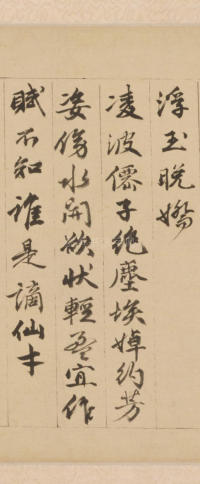 浮玉晚嬌
凌波僊子絕塵埃婥約芳
姿傍水開欲狀輕盈宜作
賦不知誰是謫仙才